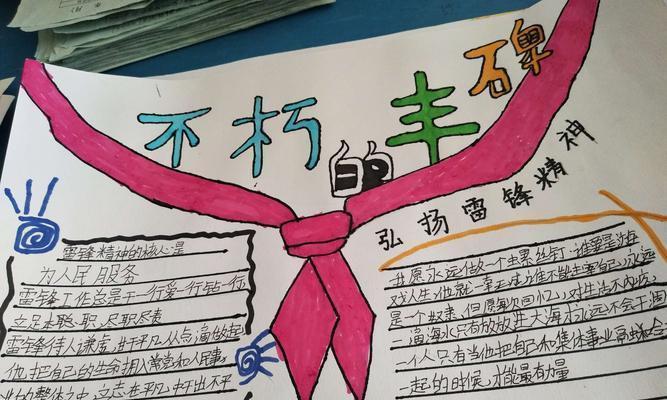 不朽的丰碑
弘扬雷锋精神
雷锋精神的核心是
为人民服务
雷锋工作总是干一行爱一行钻一行
立足本职、尽职尽责
雷锋待人谦虚,出于平凡,从点滴做起
他把自己的生命
我愿永远做一个螺丝钉
戏人生,他就一事无成,谁不能主宰自己,永远
是一个奴隶
一滴海水只有放进大海才永远不会干涸
一个人只有当他把自己和集体事业
一起的时候,才能最有力量